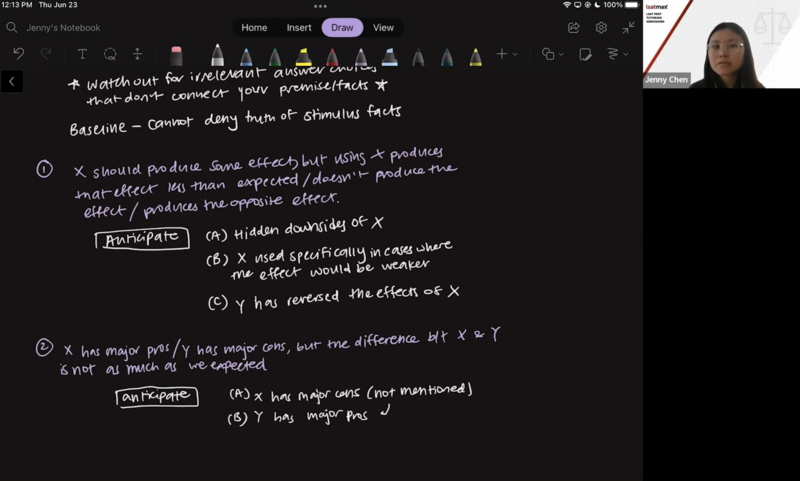 12:13 PM Thu Jun 23
100%
Jenny's Notebook
Home Insert Draw View
* watch out for irrelevant answer choices
that don't connect your premise/facts *
Baseline – cannot deny truth of stimulus facts
① X should produce some effect, but using X produces
that effect less than expected/doesn't produce the
effect / produces the opposite effect.
Anticipate (A) Hidden downsides of X
(B) X used specifically in cases where
the effect would be weaker
(C) Y has reversed the effects of X
② X has major pros/Y has major cons, but the difference b/t X & Y
is not as much as we expected
anticipate (A) X has major cons (not mentioned)
(B) Y has major pros
lsatmax
LSAT PREP
TUTORING
ADMISSIONS
Jenny Chen